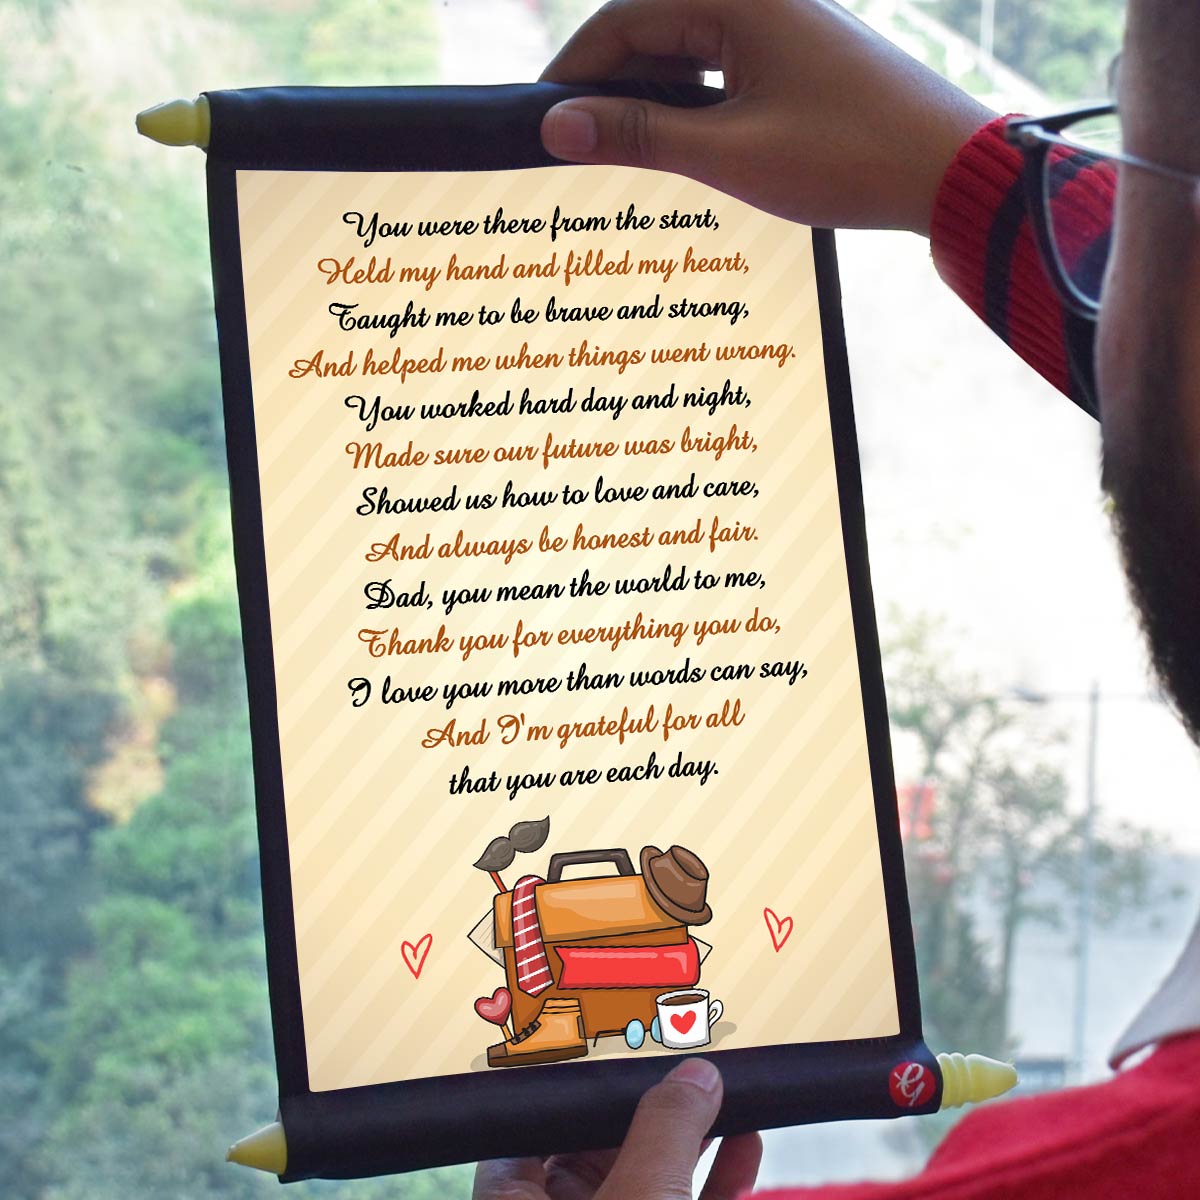 You were there from the start,
Held my hand and filled my heart,
Taught me to be brave and strong,
And helped me when things went wrong.
You worked hard day and night,
Made sure our future was bright,
Showed us how to love and care,
And always be honest and fair.
Dad, you mean the world to me,
Thank you for everything you do,
I love you more than words can say,
And I'm grateful for all
that you are each day.